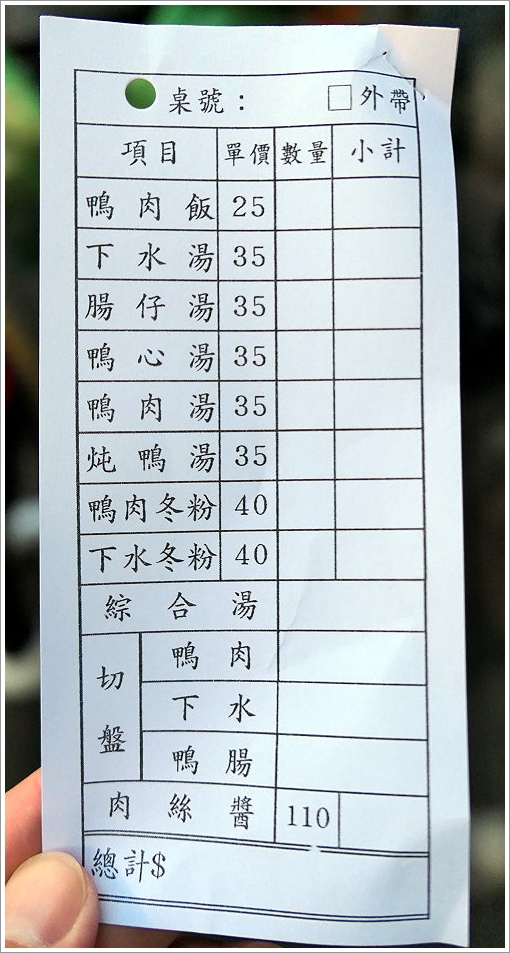 桌號： □外帶
項目 單價 數量 小計
鴨肉飯 25
下水湯 35
腸仔湯 35
鴨心湯 35
鴨肉湯 35
炖鴨湯 35
鴨肉冬粉 40
下水冬粉 40
綜合湯
切盤 鴨肉
下水
鴨腸
肉絲醬 110
總計$